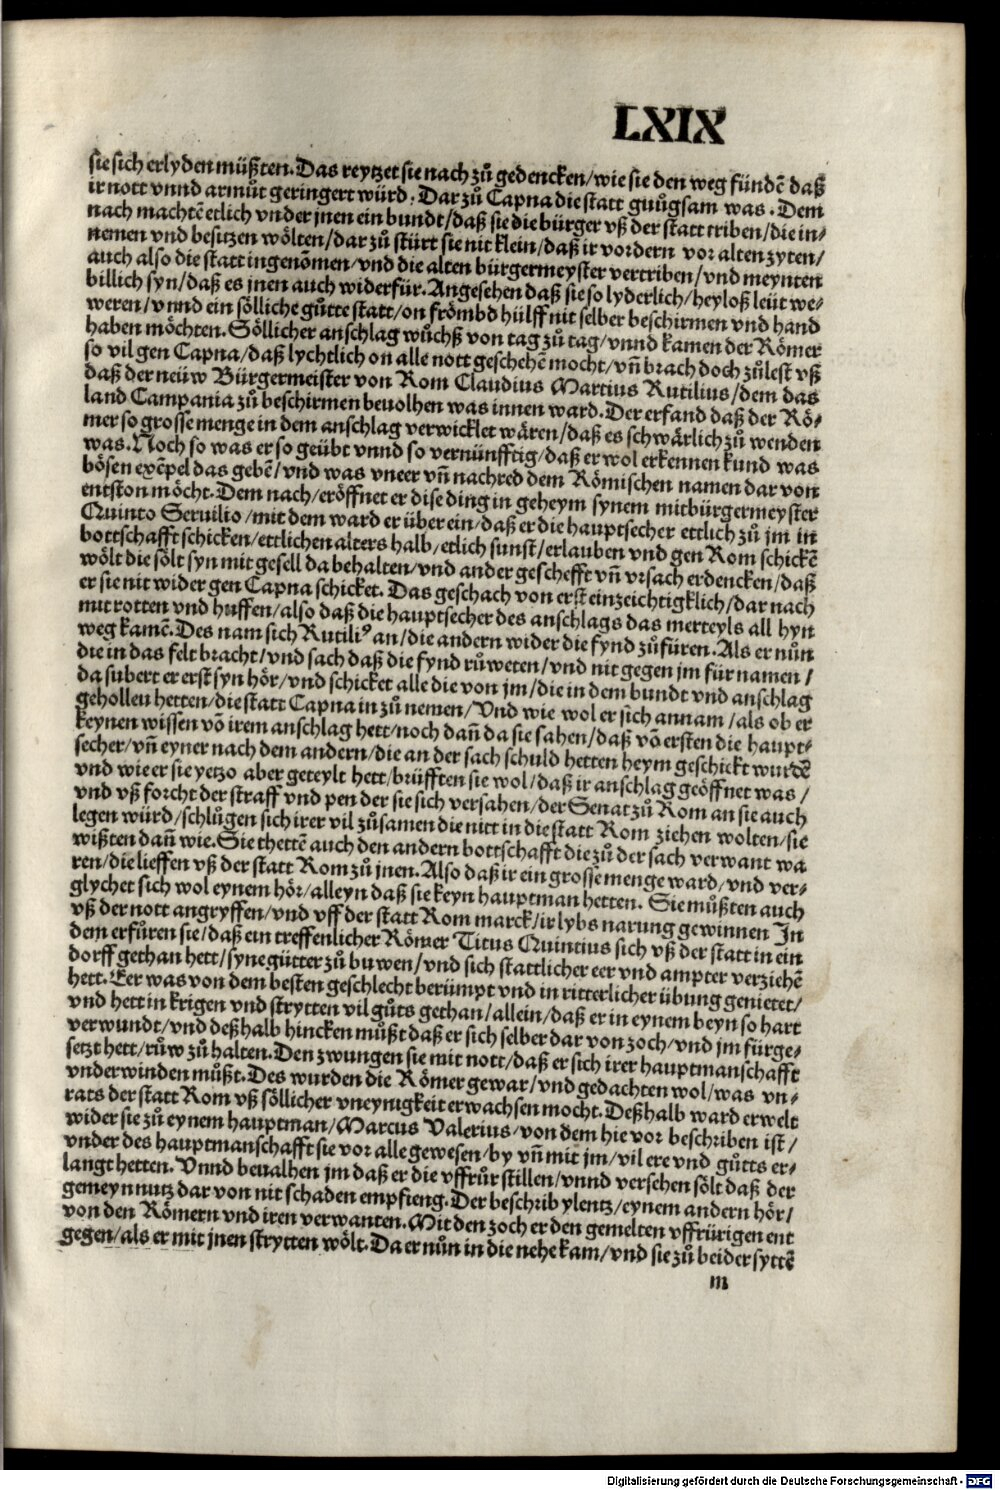 LXIX
sie sich erlyden müßten. Das reytzet sie nach zů gedencken/wie sie den weg fündē daß
ir nott vnnd armůt geringert würd. Dar zů Capna die statt gnůgsam was. Dem
nach machtē etlich vnder jnen ein bundt/daß sie die bürger vß der statt triben/die in⸗
nemen vnd besitzen wölten/dar zů stürt sie nit klein/daß ir vordern vor alten zyten/
auch also die statt ingenōmen/vnd die alten bürgermeyster vertriben/vnd meynten
billich syn/daß es jnen auch widerfür. Angesehen daß sie so lyderlich/heyloß leüt we⸗
weren/vnnd ein sölliche gůtte statt/on frömbd hülff nit selber beschirmen vnd hand
haben möchten. Söllicher anschlag wůchß von tag zů tag/vnnd kamen der Römer
so vil gen Capna/daß lychtlich on alle nott geschehē mocht/vn̄ brach doch zůlest vß
daß der neüw Bürgermeister von Rom Claudius Martius Rutilius/dem das
land Campania zů beschirmen beuolhen was innen ward. Der erfand daß der Rö⸗
mer so grosse menge in dem anschlag verwicklet wären/daß es schwärlich zů wenden
was. Noch so was er so geübt vnnd so vernünfftig/daß er wol erkennen kund was
bösen exēpel das gebē/vnd was vneer vn̄ nachred dem Römischen namen dar von
entston möcht. Dem nach/eröffnet er dise ding in geheym synem mitbürgermeyster
Quinto Seruilio/mit dem ward er über ein/daß er die hauptsecher ettlich zů jm in
bottschafft schicken/ettlichen alters halb/etlich sunst/erlauben vnd gen Rom schickē
wölt die sölt syn mit gesell da behalten/vnd ander geschefft vn̄ vrsach erdencken/daß
er sie nit wider gen Capna schicket. Das geschach von erst einzeichtigklich/dar nach
mit rotten vnd huffen/also daß die hauptsecher des anschlags das merteyls all hyn
weg kamē. Des nam sich Rutiliꝰ an/die andern wider die fynd zůfüren. Als er nůn
die in das felt bracht/vnd sach daß die fynd růweten/vnd nit gegen jm für namen/
da subert er erst syn hör/vnd schicket alle die von jm/die in dem bundt vnd anschlag
gehollen hetten/die statt Capna in zů nemen/Vnd wie wol er sich annam/als ob er
keynen wissen vō irem anschlag hett/noch dan̄ da sie sahen/daß vō ersten die haupt⸗
secher/vn̄ eyner nach dem andern/die an der sach schuld hetten heym geschickt wurdē
vnd wie er sie yetzo aber geteylt hett/brüfften sie wol/daß ir anschlag geöffnet was/
vnd vß forcht der straff vnd pen der sie sich versahen/der Senat zů Rom an sie auch
legen würd/schlůgen sich irer vil zůsamen die nitt in die statt Rom ziehen wolten/sie
wißten dan̄ wie. Sie thettē auch den andern bottschafft die zů der sach verwant wa
ren/die lieffen vß der statt Rom zů jnen. Also daß ir ein grosse menge ward/vnd ver⸗
glychet sich wol eynem hör/alleyn daß sie keyn hauptman hetten. Sie můßten auch
vß der nott angryffen/vnd vff der statt Rom marck/ir lybs narung gewinnen In
dem erfůren sie/daß ein treffenlicher Römer Titus Quintius sich vß der statt in ein
dorff gethan hett/syne gütter zů buwen/vnd sich stattlicher eer vnd ampter verziehē
hett. Eer was von dem besten geschlecht berümpt vnd in ritterlicher übung genietet/
vnd hett in krigen vnd strytten vil gůts gethan/allein/daß er in eynem beyn so hart
verwundt/vnd deßhalb hincken můßt daß er sich selber dar von zoch/vnd jm fürge⸗
setzt hett/růw zů halten. Den zwungen sie mit nott/daß er sich irer hauptmanschafft
vnderwinden můßt. Des wurden die Römer gewar/vnd gedachten wol/was vn⸗
rats der statt Rom vß söllicher vneynigkeit erwachsen mocht. Deßhalb ward erwelt
wider sie zů eynem hauptman/Marcus Valerius/von dem hie vor beschriben ist/
vnder des hauptmanschafft sie vor alle gewesen/by vn̄ mit jm/vil ere vnd gůtts er⸗
langt hetten. Vnnd beualhen jm daß er die vffrůr stillen/vnnd versehen sölt daß der
gemeyn nutz dar von nit schaden empfieng. Der beschrib ylentz/eynem andern hör/
von den Römern vnd iren verwanten. Mit den zoch er den gemelten vffrürigen ent
gegen/als er mit jnen strytten wölt. Da er nůn in die nehe kam/vnd sie zů beider syttē
m
Digitalisierung gefördert durch die Deutsche Forschungsgemeinschaft - DFG